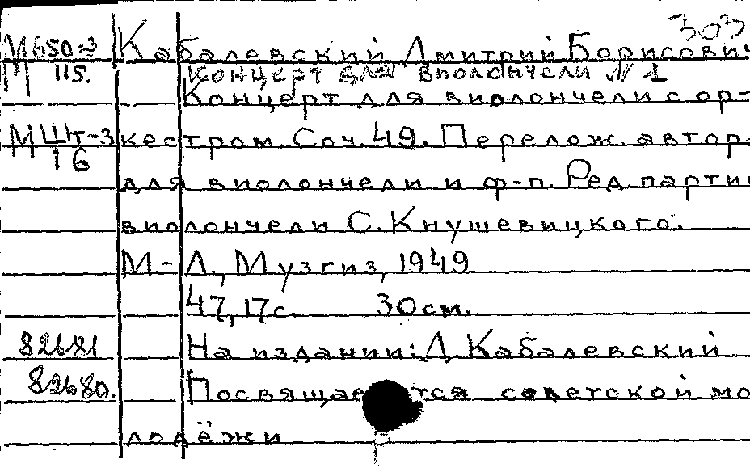 303
М650-3 Кабалевский Дмитрий Борисович
М 115. Концерт для виолончели N 1
Концерт для виолончели с ор-
МШт-3 кестром. Соч. 49. Перелож. автора
16 для виолончели и ф-п. Ред. партии
виолончели С. Кнушевицкого.
М-Л, Музгиз, 1949
47, 17с. 30см.
82681 На издании: Д Кабалевский
82680. Посвящается советской мо
лодёжи